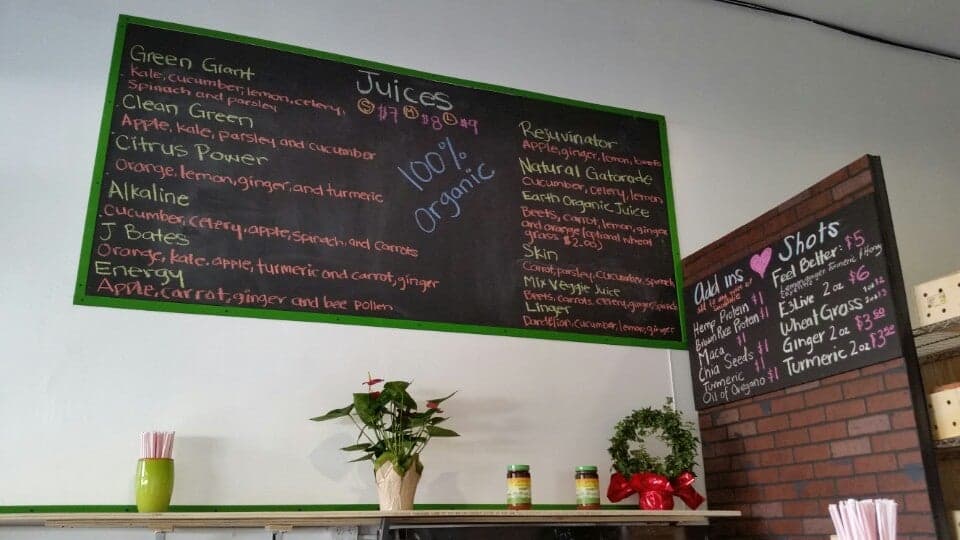 Juices
S $7 M $8 L $9
100%
Organic
Green Grant
Kale, cucumber, lemon, celery,
Spinach and parsley
Clean Green
Apple, kale, parsley and cucumber
Citrus Power
Orange, lemon, ginger, and turmeric
Alkaline
Cucumber, celery, apple, spinach, and carrots
J Bates
Orange, kale, apple, turmeric and carrot, ginger
Energy
Apple, carrot, ginger and bee pollen
Rejuvinator
Apple, ginger, lemon,
Natural Gatorade
Cucumber, celery, lemon
Earth Organic Juice
Beets, carrot, lemon, ginger
and orange (optional wheat
grass $2.00)
Skin
Carrot, parsley, cucumber, spinach
Mix Veggie Juice
Beets, carrots, celery, ginger,
Linger
Dandelion, cucumber, lemon, ginger
Add ins
add to any juice or
Smoothie
Hemp Protein $1
Brown Rice Protein $1
Maca $1
Chia Seeds $1
Turmeric $1
Oil of Oregano $1
Shots
Feel Better: $5
Lemon, ginger, Turmeric, Honey
E3Live 2oz $6
Wheat Grass
Ginger 2oz $3.50
Turmeric 2oz $3.50